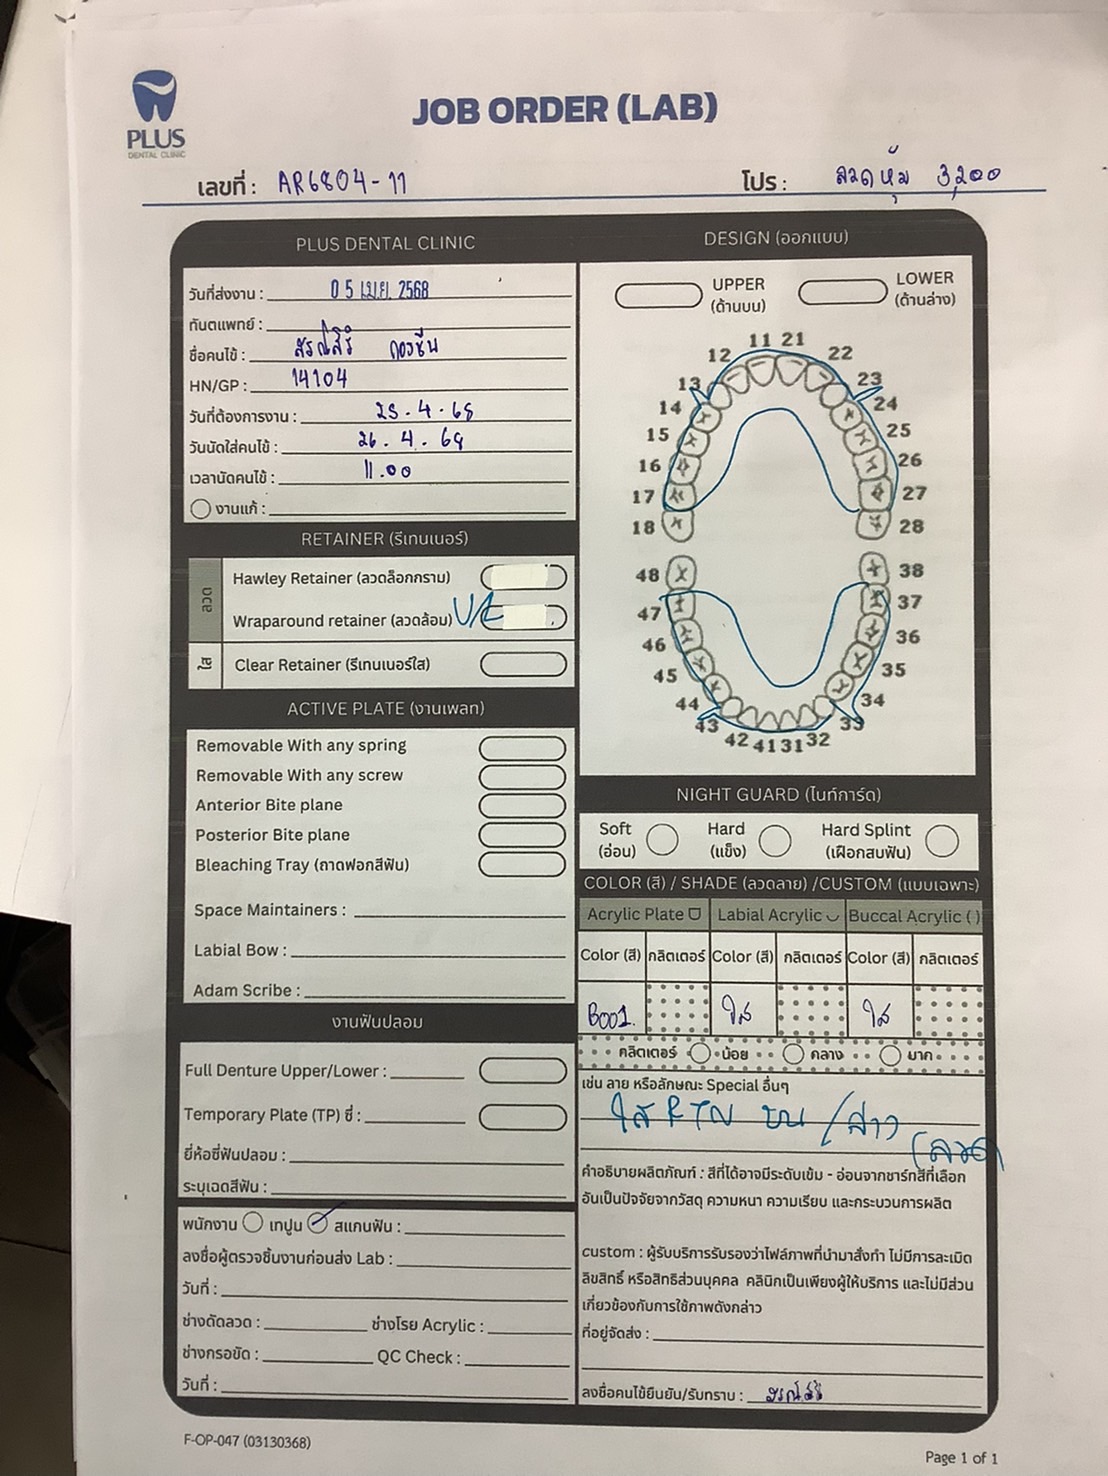 PLUS
DENTAL CLINIC
JOB ORDER (LAB)
เลขที่ : AR6804-11
โปร : ลวดหุ้ม 3,200
PLUS DENTAL CLINIC
วันที่ส่งงาน : 05 เม.ย. 2568
ทันตแพทย์ :
ชื่อคนไข้ :
HN/GP : 14104
วันที่ต้องการงาน : 25.4.68
วันนัดใส่คนไข้ : 26.4.68
เวลานัดคนไข้ : 11.00
งานแก้ :
RETAINER (รีเทนเนอร์)
ลวด
Hawley Retainer (ลวดล็อกกราม)
Wraparound retainer (ลวดล้อม) U/L
ใส
Clear Retainer (รีเทนเนอร์ใส)
ACTIVE PLATE (งานเพลท)
Removable With any spring
Removable With any screw
Anterior Bite plane
Posterior Bite plane
Bleaching Tray (ถาดฟอกสีฟัน)
Space Maintainers :
Labial Bow :
Adam Scribe :
งานฟันปลอม
Full Denture Upper/Lower :
Temporary Plate (TP) ซี่ :
ยี่ห้อซี่ฟันปลอม :
ระบุเฉดสีฟัน :
พนักงาน เทปูน สแกนฟัน :
ลงชื่อผู้ตรวจชิ้นงานก่อนส่ง Lab :
วันที่ :
ช่างดัดลวด : ช่างโรย Acrylic :
ช่างกรอขัด : QC Check :
วันที่ :
DESIGN (ออกแบบ)
UPPER
(ด้านบน)
LOWER
(ด้านล่าง)
11 21
12 22
13 23
14 24
15 25
16 26
17 27
18 28
48 38
47 37
46 36
45 35
44 34
43 33
42 41 31 32
NIGHT GUARD (ไนท์การ์ด)
Soft
(อ่อน)
Hard
(แข็ง)
Hard Splint
(เฝือกสบฟัน)
COLOR (สี) / SHADE (ลวดลาย) /CUSTOM (แบบเฉพาะ)
Acrylic Plate Labial Acrylic Buccal Acrylic ( )
Color (สี) กลิตเตอร์ Color (สี) กลิตเตอร์ Color (สี) กลิตเตอร์
B001. ใส ใส
กลิตเตอร์ น้อย กลาง มาก
เช่น ลาย หรือลักษณะ Special อื่นๆ
ใส่ RTN บน/ล่าง
(ลวด)
คำอธิบายผลิตภัณฑ์ : สีที่ได้อาจมีระดับเข้ม - อ่อนจากชาร์ทสีที่เลือก
อันเป็นปัจจัยจากวัสดุ ความหนา ความเรียบ และกระบวนการผลิต
custom : ผู้รับบริการรับรองว่าไฟล์ภาพที่นำมาสั่งทำ ไม่มีการละเมิด
ลิขสิทธิ์ หรือสิทธิส่วนบุคคล คลินิกเป็นเพียงผู้ให้บริการ และไม่มีส่วน
เกี่ยวข้องกับการใช้ภาพดังกล่าว
ที่อยู่จัดส่ง :
ลงชื่อคนไข้ยืนยัน/รับทราบ :
F-OP-047 (03130368)
Page 1 of 1